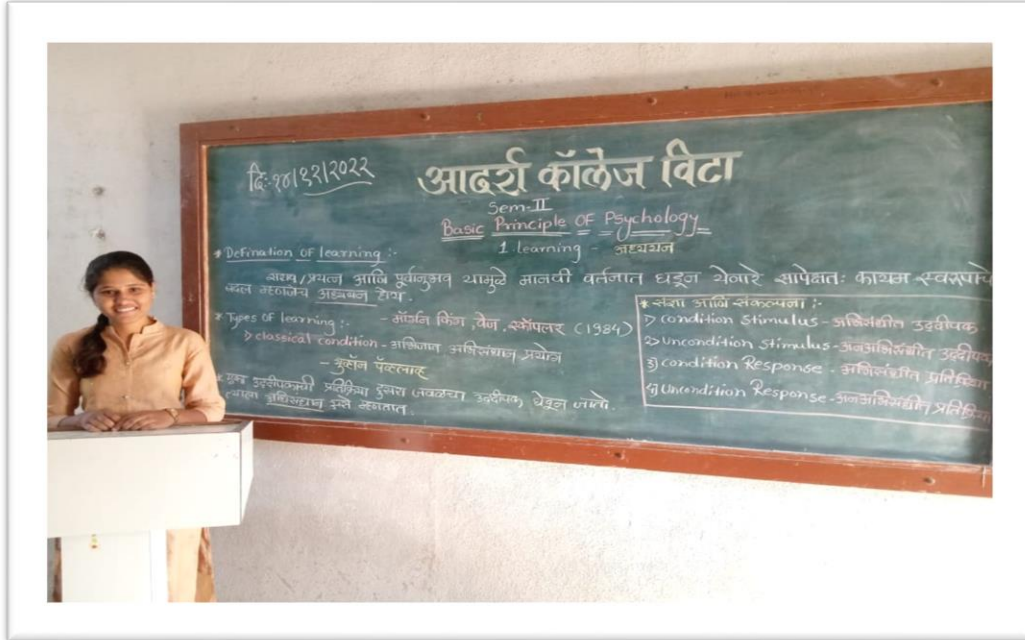 दि:-१४/१२/२०२२
आदर्श कॉलेज विटा
Sem-II
Basic Principle OF Psychology
1. learning - अध्ययन
* Defination OF learning :-
सराव/प्रयत्न आणि पूर्वानुभव यामुळे मानवी वर्तनात घडून येणारे सापेक्षतः कायम स्वरूपाचे
बदल म्हणजेच अध्ययन होय.
- मॉर्गन किंग, वेज, स्कॉपलर (1984)
* Types of learning :-
1) classical condition - अभिजात अभिसंधान प्रयोग
पॅव्लाव्ह
* एका उद्दीपकाची प्रतिक्रिया दुसरा जवळचा उद्दीपक घेऊन जातो.
त्याला अभिसंधान असे म्हणतात.
* संज्ञा आणि संकल्पना :-
1) condition stimulus - अभिसंधीत उद्दीपक
2) Uncondition stimulus - अनअभिसंधीत उद्दीपक
3) condition Response - अभिसंधीत प्रतिक्रिया
4) Uncondition Response - अनअभिसंधीत प्रतिक्रिया